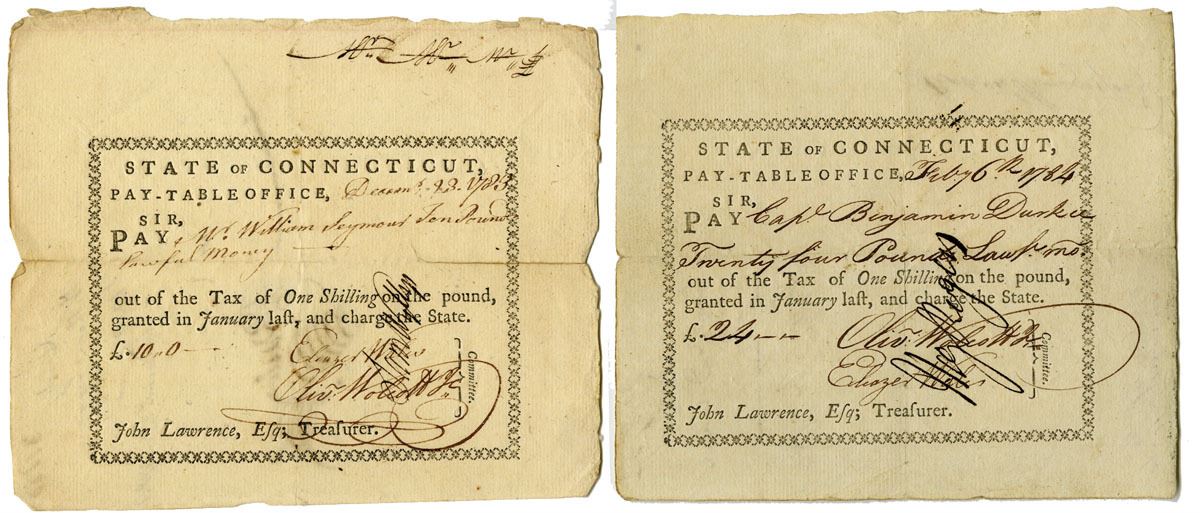 STATE OF CONNECTICUT,
PAY-TABLE OFFICE, 23. 1783
SIR,
PAY, Mr. William Seymour Ten Pounds
Lawful Money
out of the Tax of One Shilling on the pound,
granted in January laſt, and charge the State.
£.10..0
Eleazer Wales
Olivr. Wolcott Jr.
Committee.
John Lawrence, Eſq; Treaſurer.
STATE OF CONNECTICUT,
PAY-TABLE OFFICE, Feby 6th 1784
SIR,
PAY Capt. Binjamin Durkee
Twenty four Pounds Lawf. mo.
out of the Tax of One Shilling on the pound,
granted in January laſt, and charge the State.
£.24--
Olivr. Wolcott Jr
Eliazer Wales
Committee.
John Lawrence, Eſq; Treaſurer.